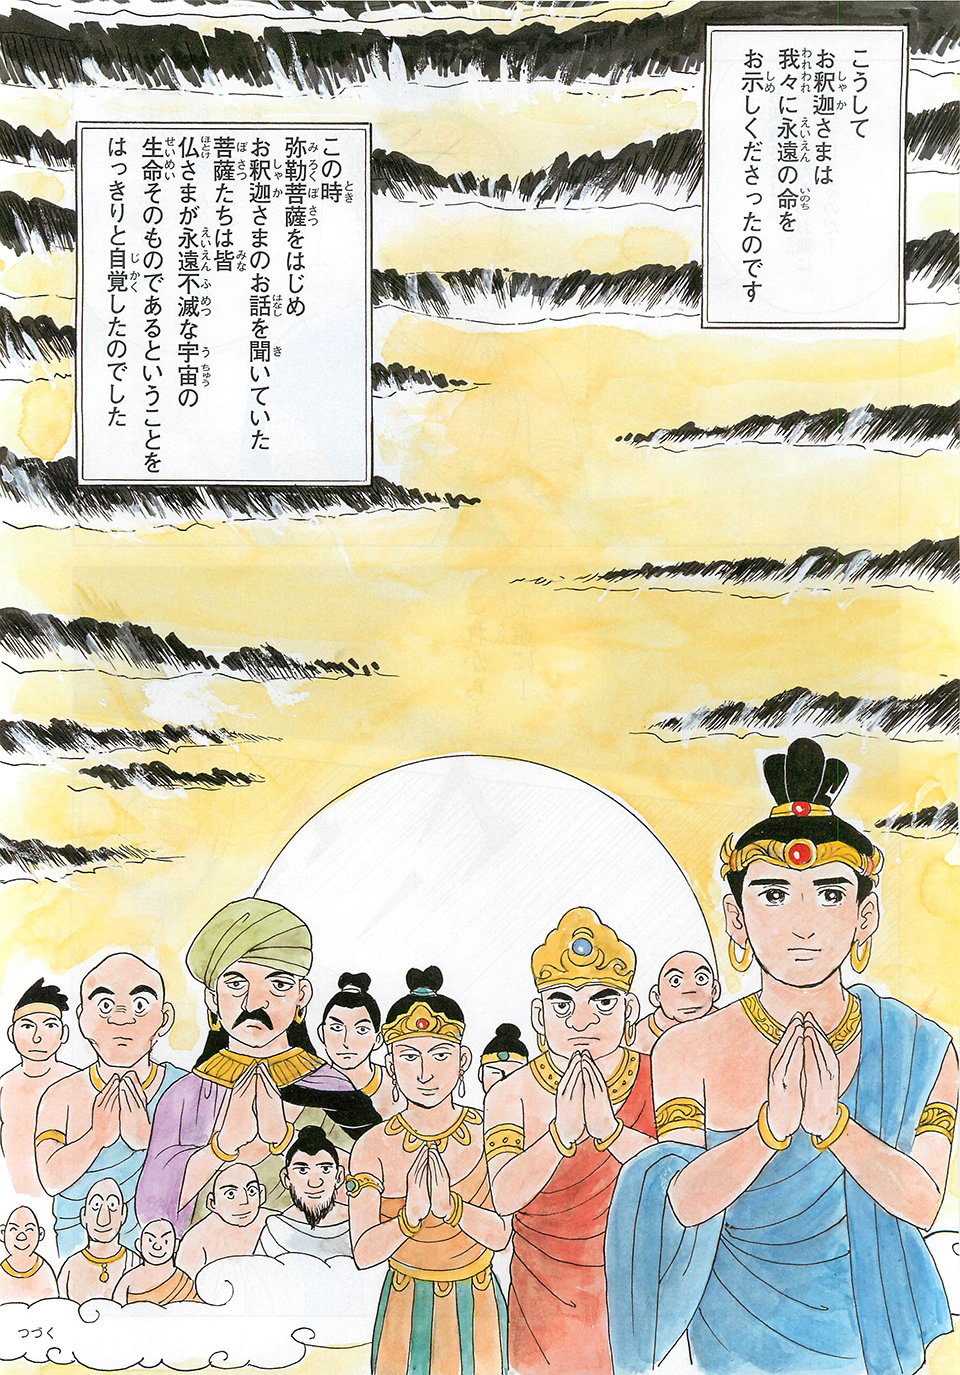 こうして
お釈迦さまは
我々に永遠の命を
お示しくださったのです
この時
弥勒菩薩をはじめ
お釈迦さまのお話を聞いていた
菩薩たちは皆
仏さまが永遠不滅な宇宙の
生命そのものであるということを
はっきりと自覚したのでした
つづく